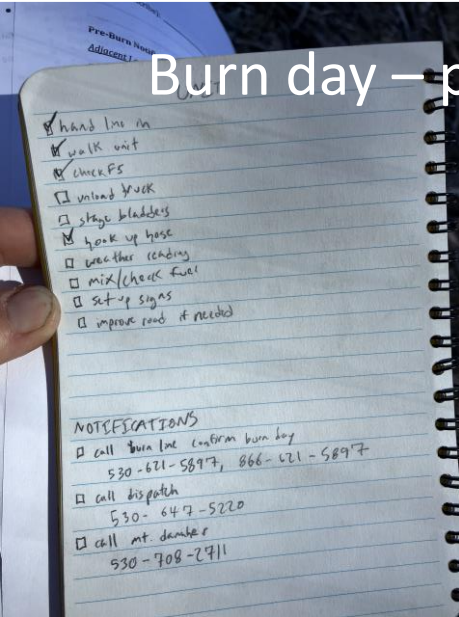 Pre-Burn
Adjacent
Burn day – p
UNIT
hand line in
walk unit
check FS
unload truck
stage bladders
hook up hose
weather reading
mix/check fuel
set up signs
improve road if needed
NOTIFICATIONS
call burn line confirm burn day
530-621-5897, 866-621-5897
call dispatch
530-647-5220
call mt.
530-708-2711